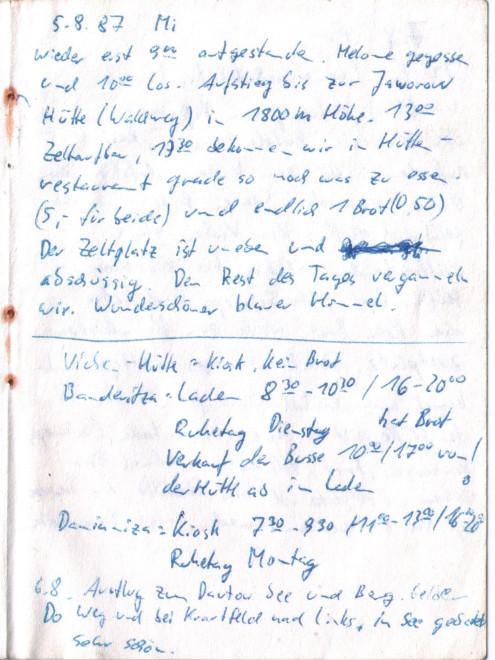 5.8.87 Mi
wieder erst 9⁰⁰ aufgestanden. Melone gegessen
und 10⁰⁰ los. Aufstieg bis zur Jaworow
Hütte (Waldweg) in 1800 m Höhe. 13⁰⁰
Zeltaufbau, 17³⁰ bekommen wir in Hütten-
restaurant grade so noch was zu essen
(5,- für beide) und endlich 1 Brot (0,50)
Der Zeltplatz ist uneben und
abschüssig. Den Rest des Tages vergammeln
wir. Wunderschöner blauer Himmel.
Vichren-Hütte = Kiosk, kein Brot
Banderitza = Laden 8³⁰-10³⁰ / 16-20⁰⁰
Ruhetag Dienstag hat Brot
Verkauf der Busse 10⁰⁰/17⁰⁰ von
der Hütte ab im Laden
Damianiza = Kiosk 7³⁰-9³⁰ / 11⁰⁰-13⁰⁰ /
Ruhetag Montag
6.8. Ausflug zum Dautow See und Berg.
Do Weg und bei nach links, in See gebadet
sehr schön.